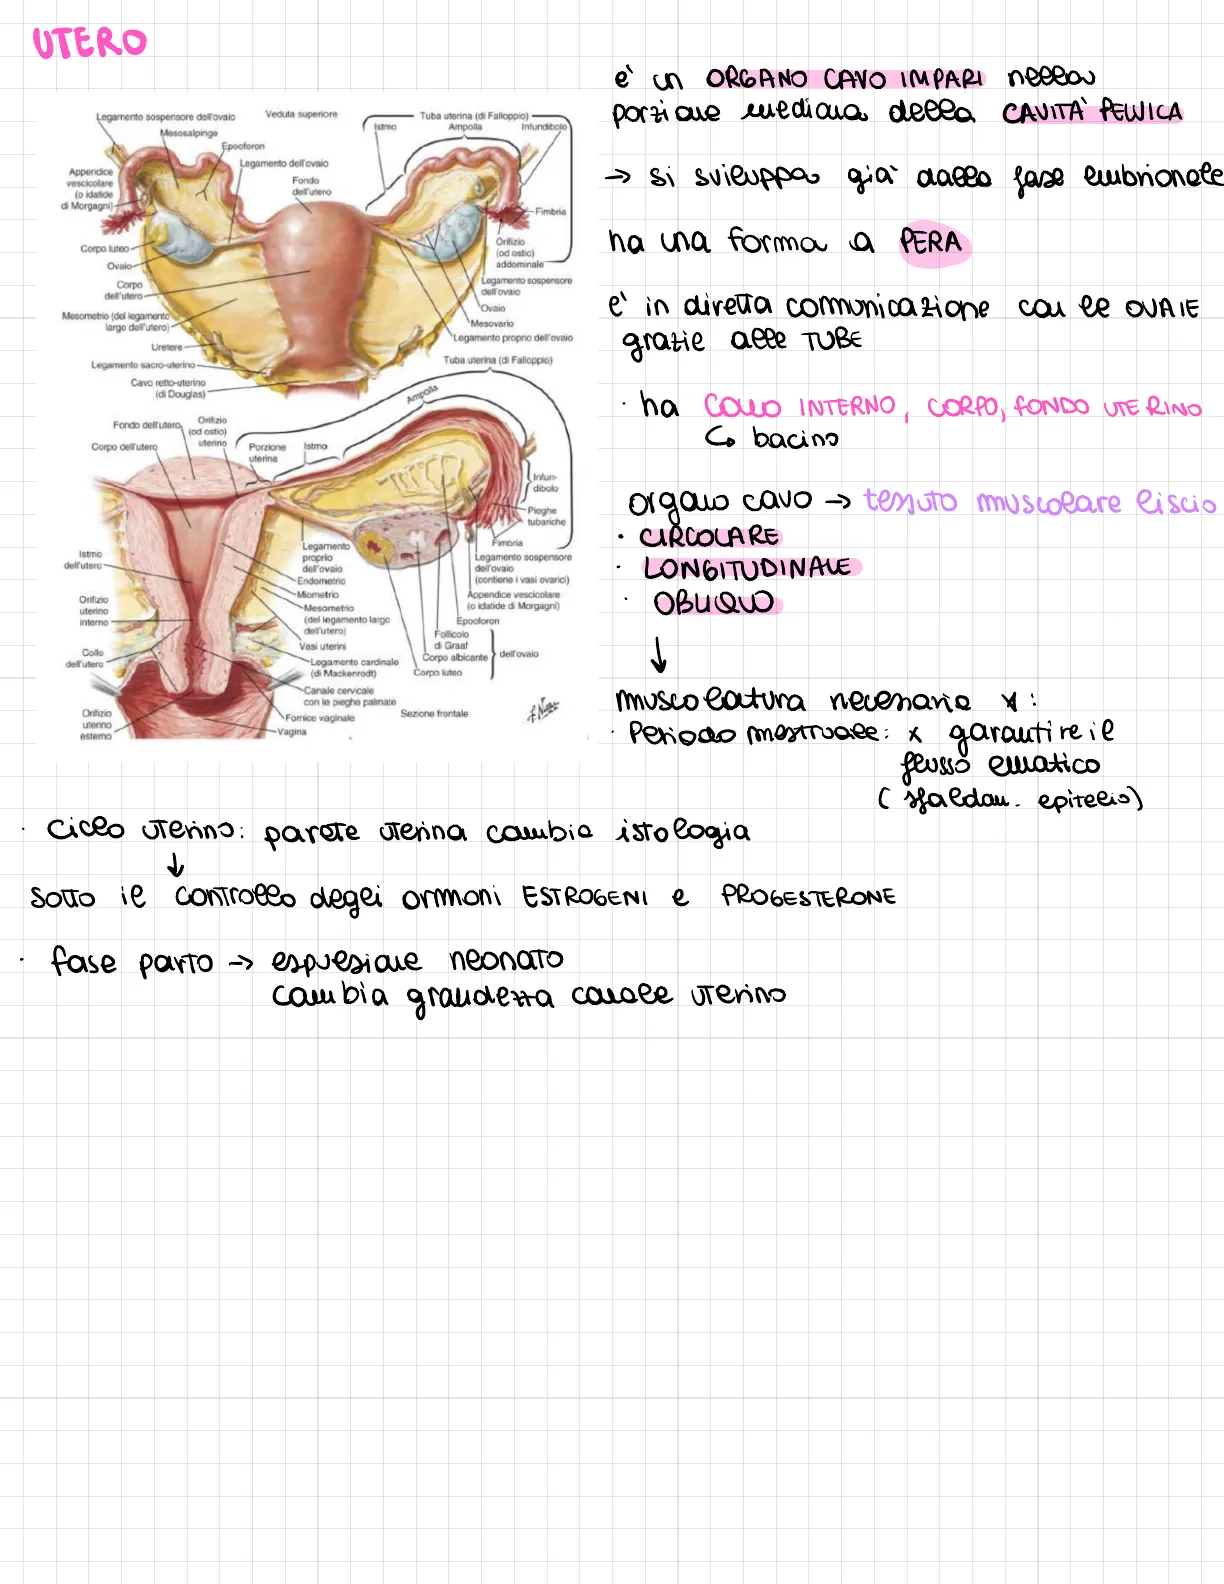 UTERO
è un ORGANO CAVO IMPARI nella
porzione mediana della CAVITÀ PELVICA
→ si sviluppa già dalla fase embrionale
ha una forma a PERA
è in diretta comunicazione con le OVAIE
grazie alle TUBE
· ha COLLO INTERNO, CORPO, FONDO UTERINO
↳ bacino
organo cavo → tessuto muscolare liscio
· CIRCOLARE
· LONGITUDINALE
· OBLIQUO
↓
muscolatura necessaria x:
· Periodo mestruale: x garantire il
flusso ematico
(sfaldam. epitelio)
· Ciclo uterino: parete uterina cambia istologia
↓
sotto il controllo degli ormoni ESTROGENI e PROGESTERONE
· fase parto → espulsione neonato
cambia grandezza canale uterino
Legamento sospensore dell'ovaio
Veduta superiore
Tuba uterina (di Falloppio)
Istmo
Ampolla
Infundibolo
Mesosalpinge
Epooforon
Legamento dell'ovaio
Appendice
vescicolare
(o idatide
di Morgagni)
Fondo
dell'utero
Fimbria
Corpo luteo
Ovaio
Orifizio
(od ostio)
addominale
Corpo
dell'utero
Legamento sospensore
dell'ovaio
Ovaio
Mesometrio (del legamento
largo dell'utero)
Mesovario
Legamento proprio dell'ovaio
Uretere
Legamento sacro-uterino
Cavo retto-uterino
(di Douglas)
Tuba uterina (di Falloppio)
Ampolla
Fondo dell'utero
Orifizio
(od ostio)
uterino
Corpo dell'utero
Porzione
uterina
Istmo
Infun-
dibolo
Pieghe
tubariche
Fimbria
Istmo
dell'utero
Legamento
proprio
dell'ovaio
Legamento sospensore
dell'ovaio
(contiene i vasi ovarici)
Endometrio
Miometrio
Mesometrio
(del legamento largo
dell'utero)
Appendice vescicolare
(o idatide di Morgagni)
Orifizio
uterino
interno
Epooforon
Follicolo
di Graaf
Corpo albicante
Corpo luteo
dell'ovaio
Vasi uterini
Collo
dell'utero
Legamento cardinale
(di Mackenrodt)
Canale cervicale
con le pieghe palmate
Orifizio
uterino
esterno
Fornice vaginale
Sezione frontale
Vagina
F. Netter